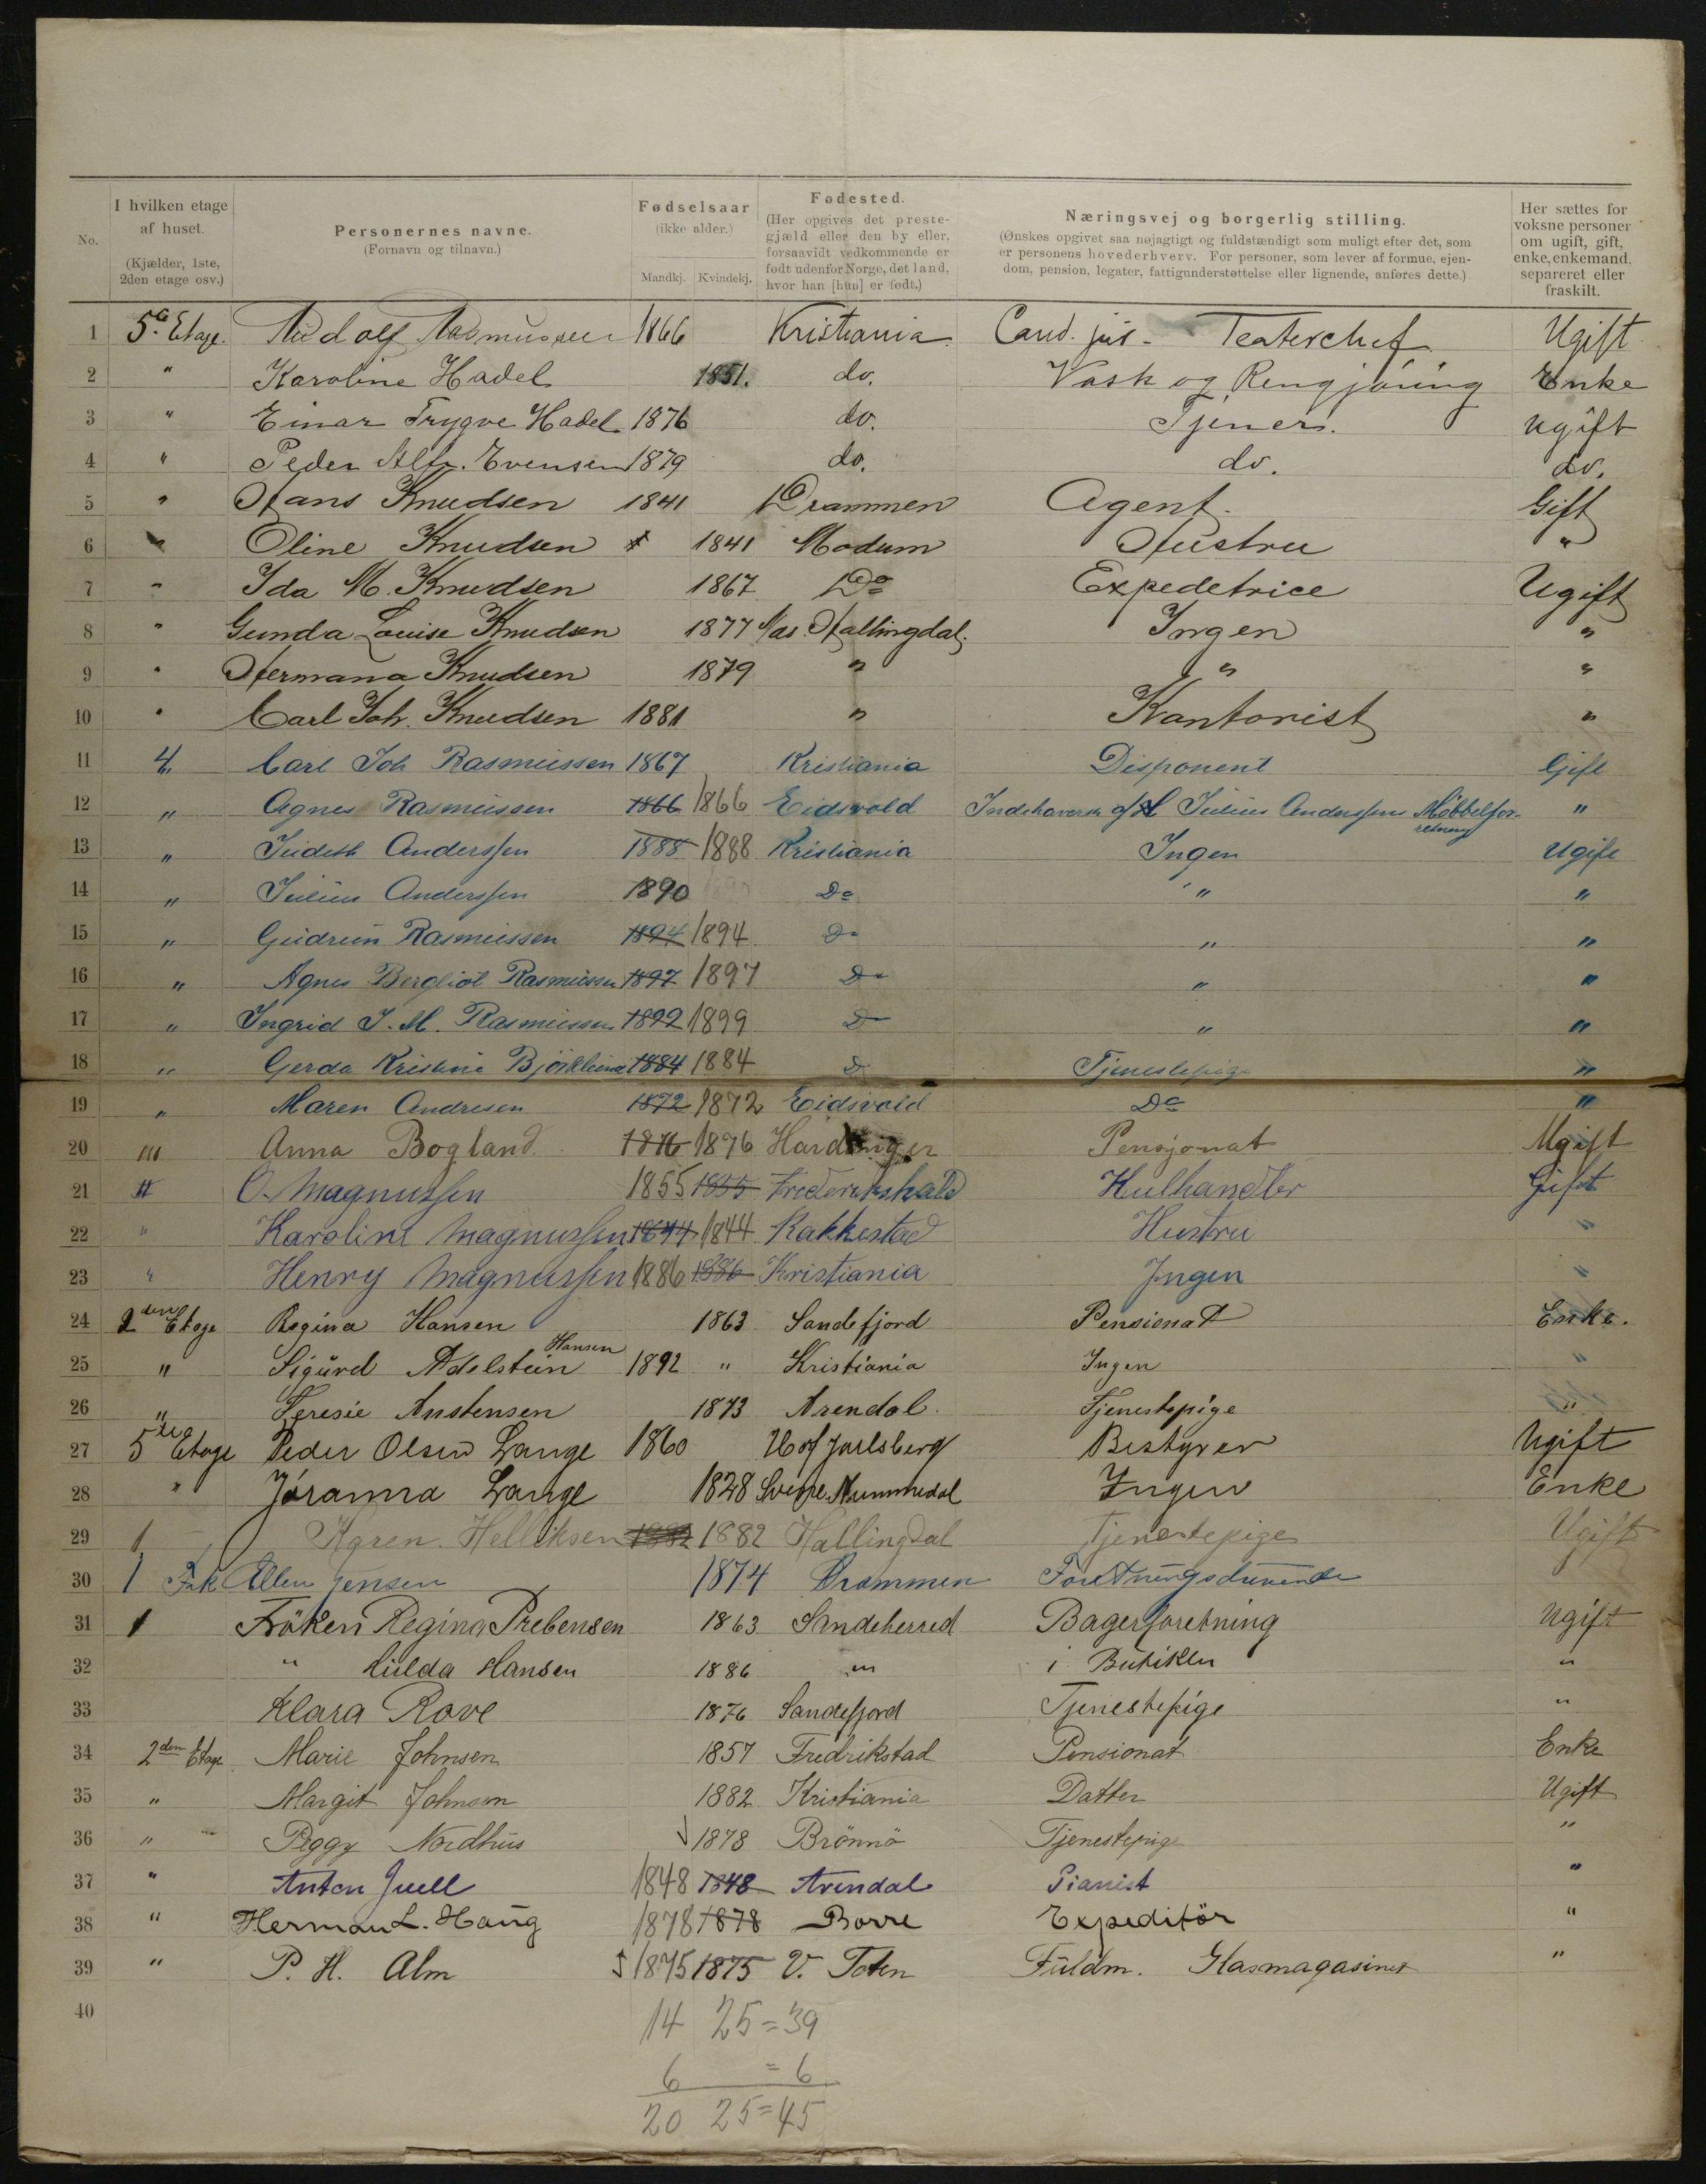 No. I hvilken etage af huset. (Kjælder, 1ste, 2den etage osv.) Personernes navne. (Fornavn og tilnavn.) Fødselsaar (ikke alder.) Mandkj. Kvindekj. Fødested. (Her opgives det prestegjæld eller den by eller, forsaavidt vedkommende er født udenfor Norge, det land, hvor han [hun] er født.) Næringsvej og borgerlig stilling. (Ønskes opgivet saa nøjagtigt og fuldstændigt som muligt efter det, som er personens hovederhverv. For personer, som lever af formue, ejendom, pension, legater, fattigunderstøttelse eller lignende, anføres dette.) Her sættes for voksne personer om ugift, gift, enke, enkemand, separeret eller fraskilt.
1 5. Etage. Rudolf Rasmussen 1866 Kristiania Cand. jur. - Teaterchef Ugift
2 " Karoline Hadel 1851. do. Vask og Rengjöring Enke
3 " Einar Trygve Hadel 1876 do. Tjener. ugift
4 " Peder Alfr. Evensen 1879 do. do. do.
5 " Hans Knudsen 1841 Drammen Agent. Gift
6 " Oline Knudsen 1841 Modum Hustru "
7 " Ida M. Knudsen 1867 Do Expedetrice Ugift
8 " Gunda Louise Knudsen 1877 Nas. Hallingdal. Ingen "
9 " Hermana Knudsen 1879 " " "
10 " Carl Joh. Knudsen 1881 " Kantorist "
11 4. Carl Joh Rasmussen 1867 Kristiania Disponent Gift
12 " Agnes Rasmussen 1866 1866 Eidsvold Indehaversk af Julius Anderssens Möbbelforretning "
13 " Judeth Anderssen 1888 1888 Kristiania Ingen Ugift
14 " Julius Anderssen 1890 Do " "
15 " Gudrun Rasmussen 1894 1894 Do " "
16 " Agnes Bergliot Rasmussen 1897 1897 Do " "
17 " Ingrid J. M. Rasmussen 1899 1899 Do " "
18 " Gerda Kristine Björklund 1884 1884 D Tjenestepige "
19 " Maren Andresen 1872 1872 Eidsvold Do "
20 " Anna Bogland 1876 1876 Hardanger Pensjonat Ugift
21 " O. Magnussen 1855 1855 Frederikshald Kulhandler Gift
22 " Karoline Magnussen 1844 1844 Rakkestad Hustru "
23 " Henry Magnussen 1886 1886 Kristiania Ingen "
24 2den Etage Regina Hansen 1863 Sandefjord Pensionat Enke.
25 " Sigurd Adelstein Hansen 1892 " Kristiania Ingen "
26 " Teresie Austensen 1873 Arendal. Tjenestepige "
27 5te Etage Peder Olsen Lange 1860 Hof Jarlsberg Bestyrer Ugift
28 " Joranna Lange 1828 Svene Nummedal Ingen Enke
29 1 Karen. Helliksen 1882 1882 Hallingdal Tjenestepige Ugift
30 1 Frk Ellen Jensen 1874 Drammen Foretningsdrivende
31 1 Fröken Regina Prebensen 1863 Sandeherred Bagerforetning Ugift
32 " Hulda Hansen 1886 " i Butiklen "
33 Klara Rove 1876 Sandefjord Tjenestepige "
34 2den Etage Marie Johnsen 1857 Fredrikstad Pensionat Enke
35 " Margit Johnsen 1882 Kristiania Datter Ugift
36 " Peggy Nordhus 1878 Brönnö Tjenestepige "
37 " Anton Juell 1848 1848 Arendal Pianist "
38 " Herman L. Haug 1878 1878 Borre Expeditör "
39 " P. H. Alm 1875 1875 V. Toten Fuldm. Glasmagasinet "
40
14 25 = 39
6 = 6
20 25 = 45